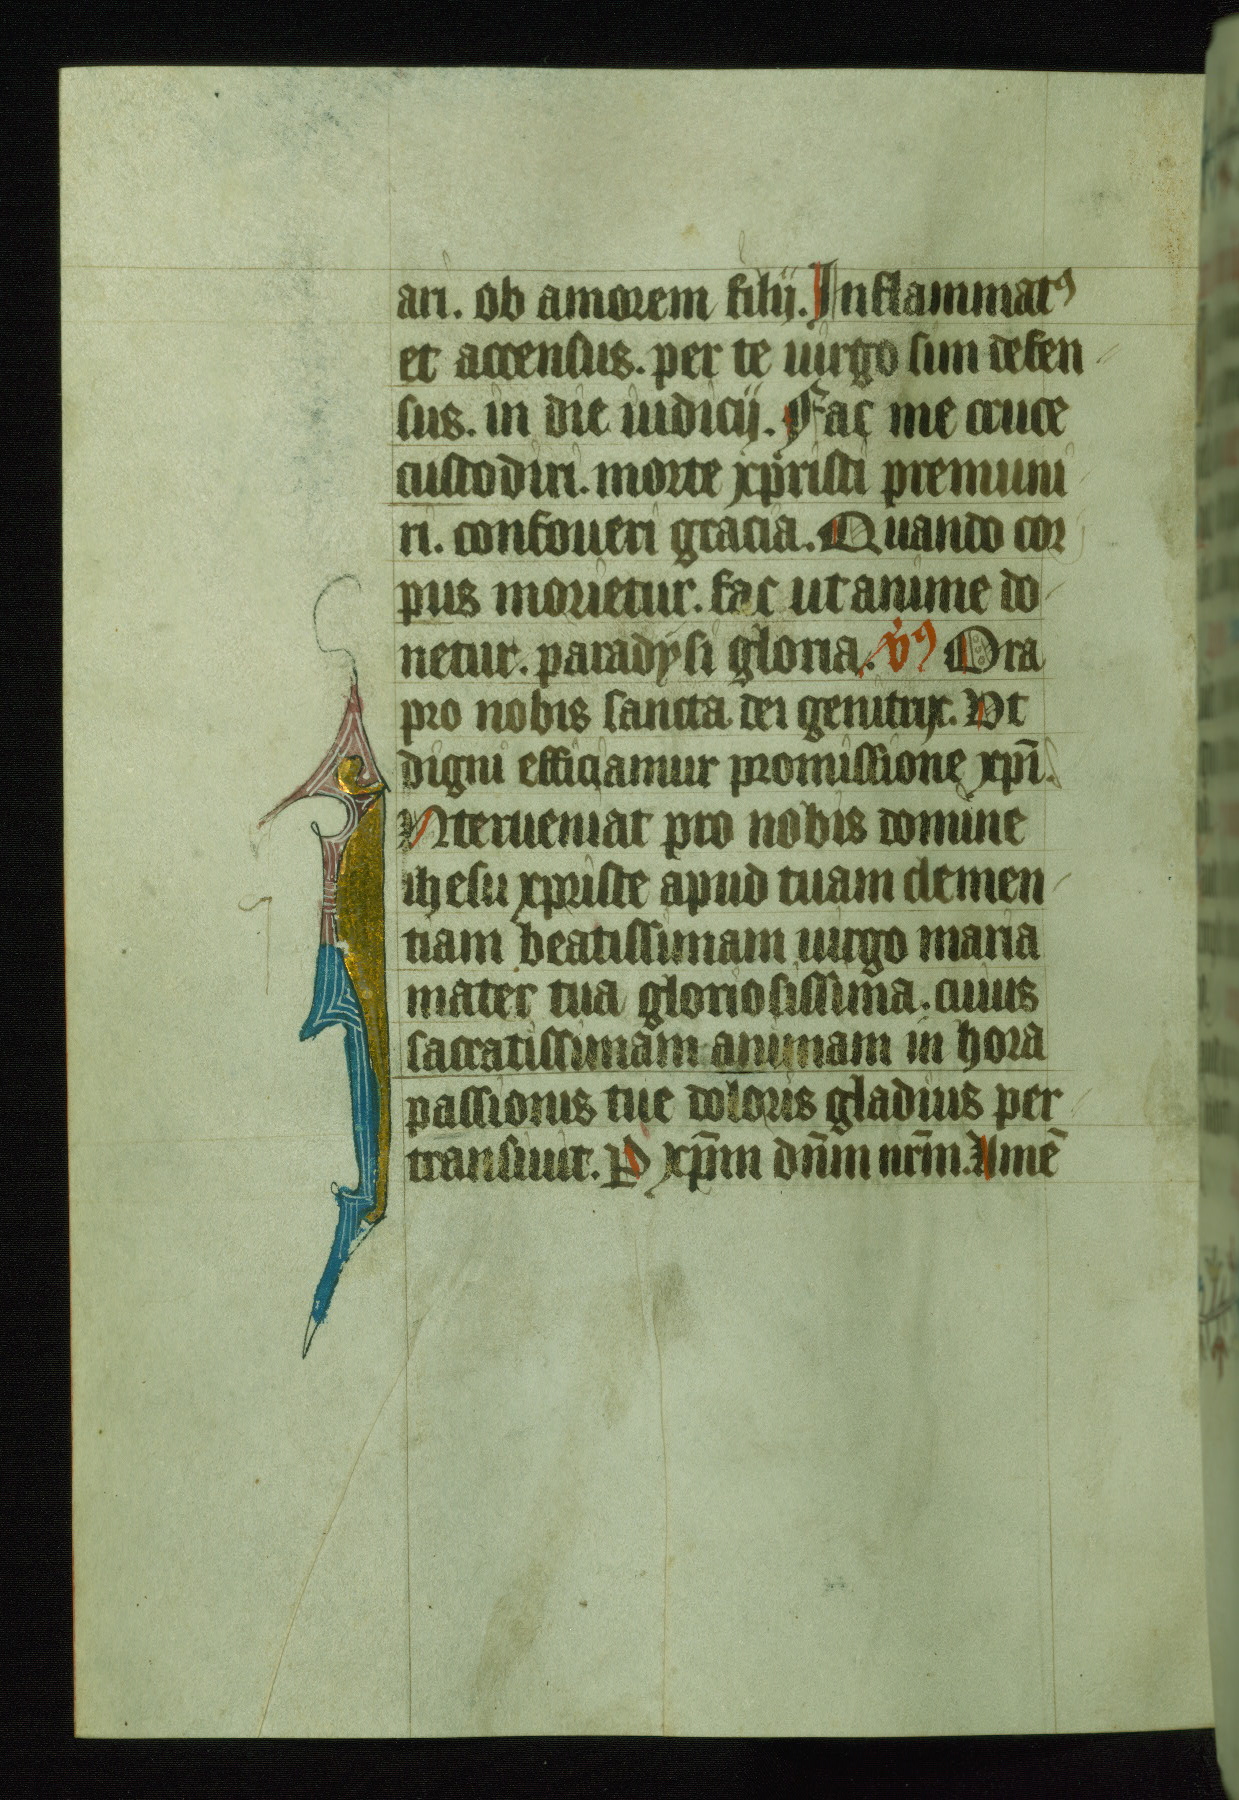 ari. ob amorem filij. Inflammatꝰ
et accensus. per te uirgo sim defen
sus. in die iudicij. Fac me cruce
custodiri. morte xpristi premuni
ri. confoueri gracia. Quando cor
pus morietur. fac ut anime do
netur. paradysi gloria. v̉ꝰ Ora
pro nobis sancta dei genitrix. Vt
digni efficiamur promissione xp̄i.
Interueniat pro nobis domine
ihesu xpriste apud tuam clemen
tiam beatissimam uirgo maria
mater tua gloriosissima. cuius
sacratissimam animam in hora
passionis tue doloris gladius per
transiuit. P xp̄m dn̄m nr̄m. Amē